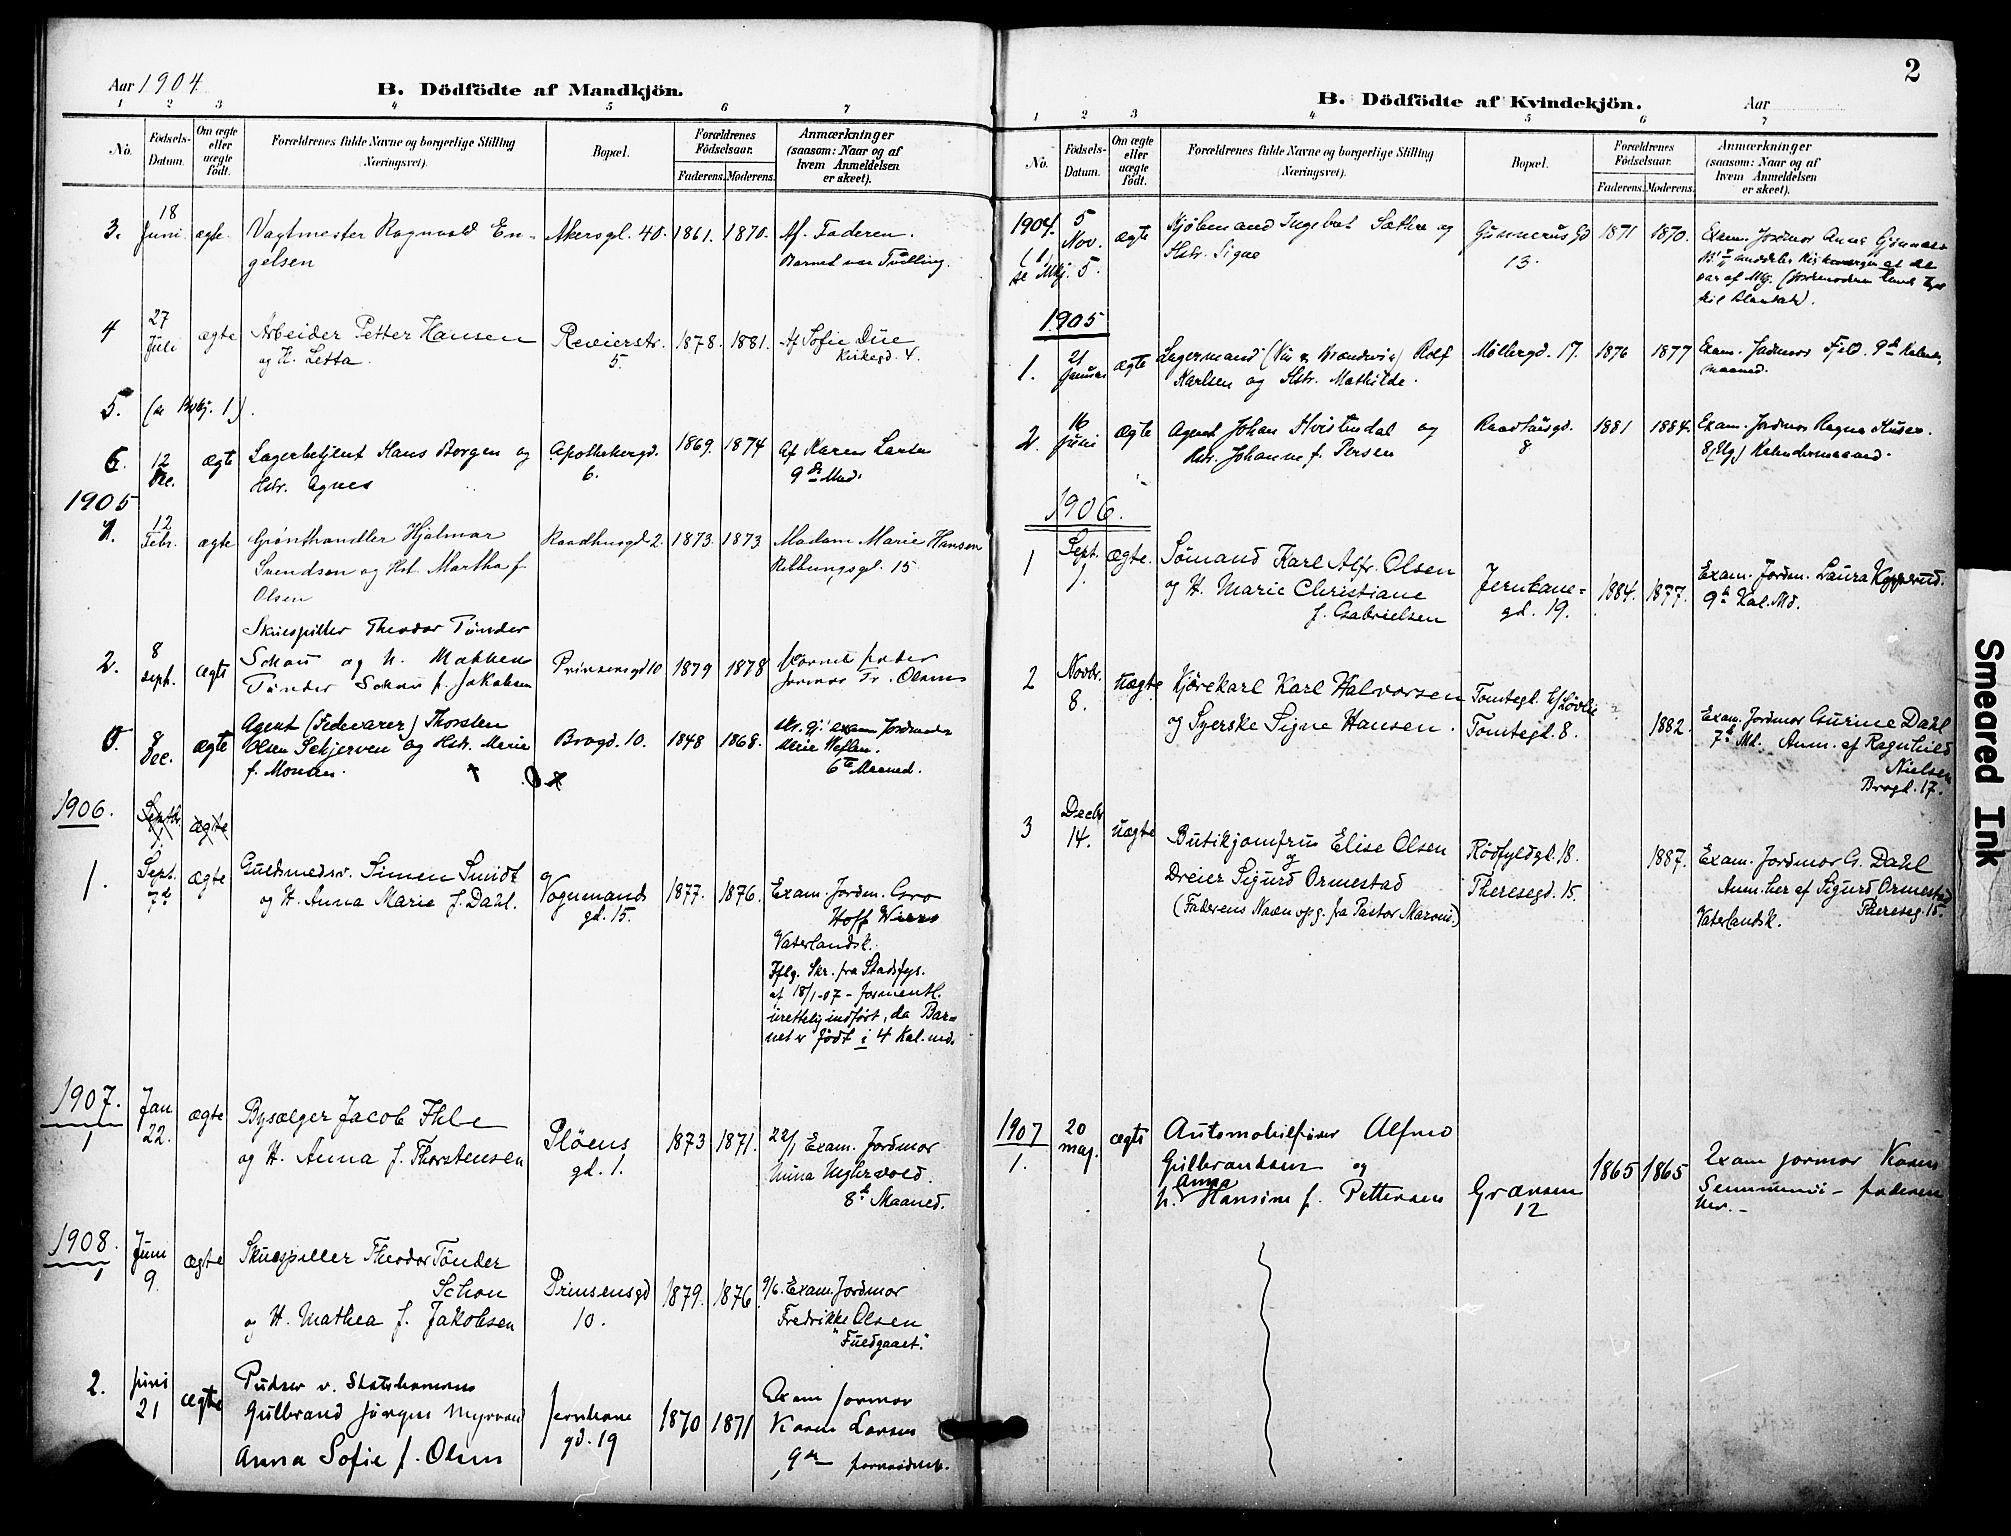 Aar 1904.
B. Dödfödte af Mandkjön.
1 2 3 4 5 6 7
No.
Födsels-
Datum.
Om ægte
eller
uægte
födt.
Forældrenes fulde Navne og borgerlige Stilling
(Næringsvei).
Bopæl.
Forældrenes
Födselsaar.
Faderens. Moderens.
Anmærkninger
(saasom: Naar og af
hvem Anmeldelsen
er skeet).
3. 18 Juni ægte Vagtmester Ragnvald En-
gelsen
Akersgt. 40. 1861. 1870. Af Faderen.
Barnet var Tvilling.
4 27 Juli ægte Arbeider Petter Hansen
og H. Letta.
Revierstr.
5.
1878. 1881. Af Sofie Due
Kirkegd. 4.
5. (se Kvkj. 1).
6. 12 Dec. ægte Lagerbetjent Hans Borgen og
Hstr. Agnes
Apothekergd.
6.
1869. 1874 Af Karen Larsen
9de Md.
1905
1. 12 Febr. ægte Grønthandler Hjalmar
Svendsen og Hst. Martha f.
Olsen
Raadhusgd 2. 1873. 1873 Madam Marie Hansen
Rebbungsgt. 15
2. 8 sept. ægte Skuespiller Theodor Tønder
Schou og H.
Tønder Schou f. Jakobsen
Prinsensgd 10 1879 1878
Jormor Fr. Olsen
8 Dec. ægte Agent (Fedevarer) Thorsten
Olsen Schjerven og Hstr. Marie
f. Monsen.
Brogd. 10. 1848 1868.
6te Maaned.
1906.
Septbr. 7. ægte
1. Sept. 7de ægte Guldsmedsv. Simen Smidt
og H. Anna Marie f. Dahl.
Vognmands
gd. 15.
1877. 1876. Exam. Jordm. Gro
Hoff
Vaterlandsk.
Iflg. Skr. fra Stadsfys.
af 18/1-07 -
urettelig indført, da Bar-
net er født i 4 Kal. md.
1907.
1 Jan 22. ægte Bysælger Jacob Ihle
og H. Anna f. Thorstensen
Pløens
gd. 1.
1873 1871. 22/1 Exam. Jordmor
Nina
8de Maaned.
1908.
1 Juni 9. ægte Skuespiller Theodor Tønder
Schou
og H. Mathea f. Jakobsen
Prinsensgd
10.
1879. 1876. 9/6. Exam. Jordmor
Fredrikke Olsen
"Fuldgaaet."
2. juni 21 ægte Pudser v. Statsbanerne
Gulbrand Jürgen Myrvand
Anna Sofie f. Olsen
Jernbane
gd. 19
1870 1871 Exam Jormor
Karen Larsen
9de
2
B. Dödfödte af Kvindekjön.
Aar
1 2 3 4 5 6 7
No.
Födsels-
Datum.
Om ægte
eller
uægte
födt.
Forældrenes fulde Navne og borgerlige Stilling
(Næringsvei).
Bopæl.
Forældrenes
Födselsaar.
Faderens. Moderens.
Anmærkninger
(saasom: Naar og af
hvem Anmeldelsen
er skeet).
1904. 5 Nov. ægte Kjøbmand Ingebret Sæthre og
Hstr. Signe
(1)
se Mkj. 5.
Gunnerus gd
13.
1871 1870. Exam. Jordmor Anne
1905
1. 21 Januar ægte Lagermand (Vin & Brændevin) Rolf
Karlsen og Hstr. Mathilde.
Møllergd. 17. 1876 1877 Exam. Jordmor Fjeld. 9de Kalender
maaned.
2. 16 Juni ægte Agent Johan Hvistendal og
Hstr. Johanne f. Persen
Raadhusgd.
8
1881 1884. Exam. Jordmor Ragna
8 Kalendermaaned.
1906.
1 Sept. 7. ægte. Sømand Karl Alfr. Olsen
og H. Marie Christiane
f. Gabrielsen
Jernbane-
gd. 19.
1884. 1877. Exam. Jordm. Laura Kopperud.
9de Kal. Md.
2 Novbr. 8. uægte Kjørekarl Karl Halvorsen
og Syerske Signe Hansen.
Tomtegt.
Tomtegt. 8.
1882. Exam. Jordmor Gurine Dahl
7de Md. Anm. af Ragnhild
Nielsen
Brogt. 17.
3 Decbr 14. uægte Butikjomfru Elise Olsen
og
Dreier Sigurd Ormestad
(Faderens Navn opg. fra Pastor Maroni.)
Rødfyldgt. 18.
Theresegd. 15.
1887. Exam. Jordmor G. Dahl
Anm. her af Sigurd Ormestad
Thereseg. 15.
Vaterlandsk.
1907
1. 20 maj. ægte Automobilfører Alfred
Gulbrandsen og
H. Anna Hansine f. Pettersen
Grænsen
12
1865 1865 Exam jormor Karen
faderen
Smeared Ink